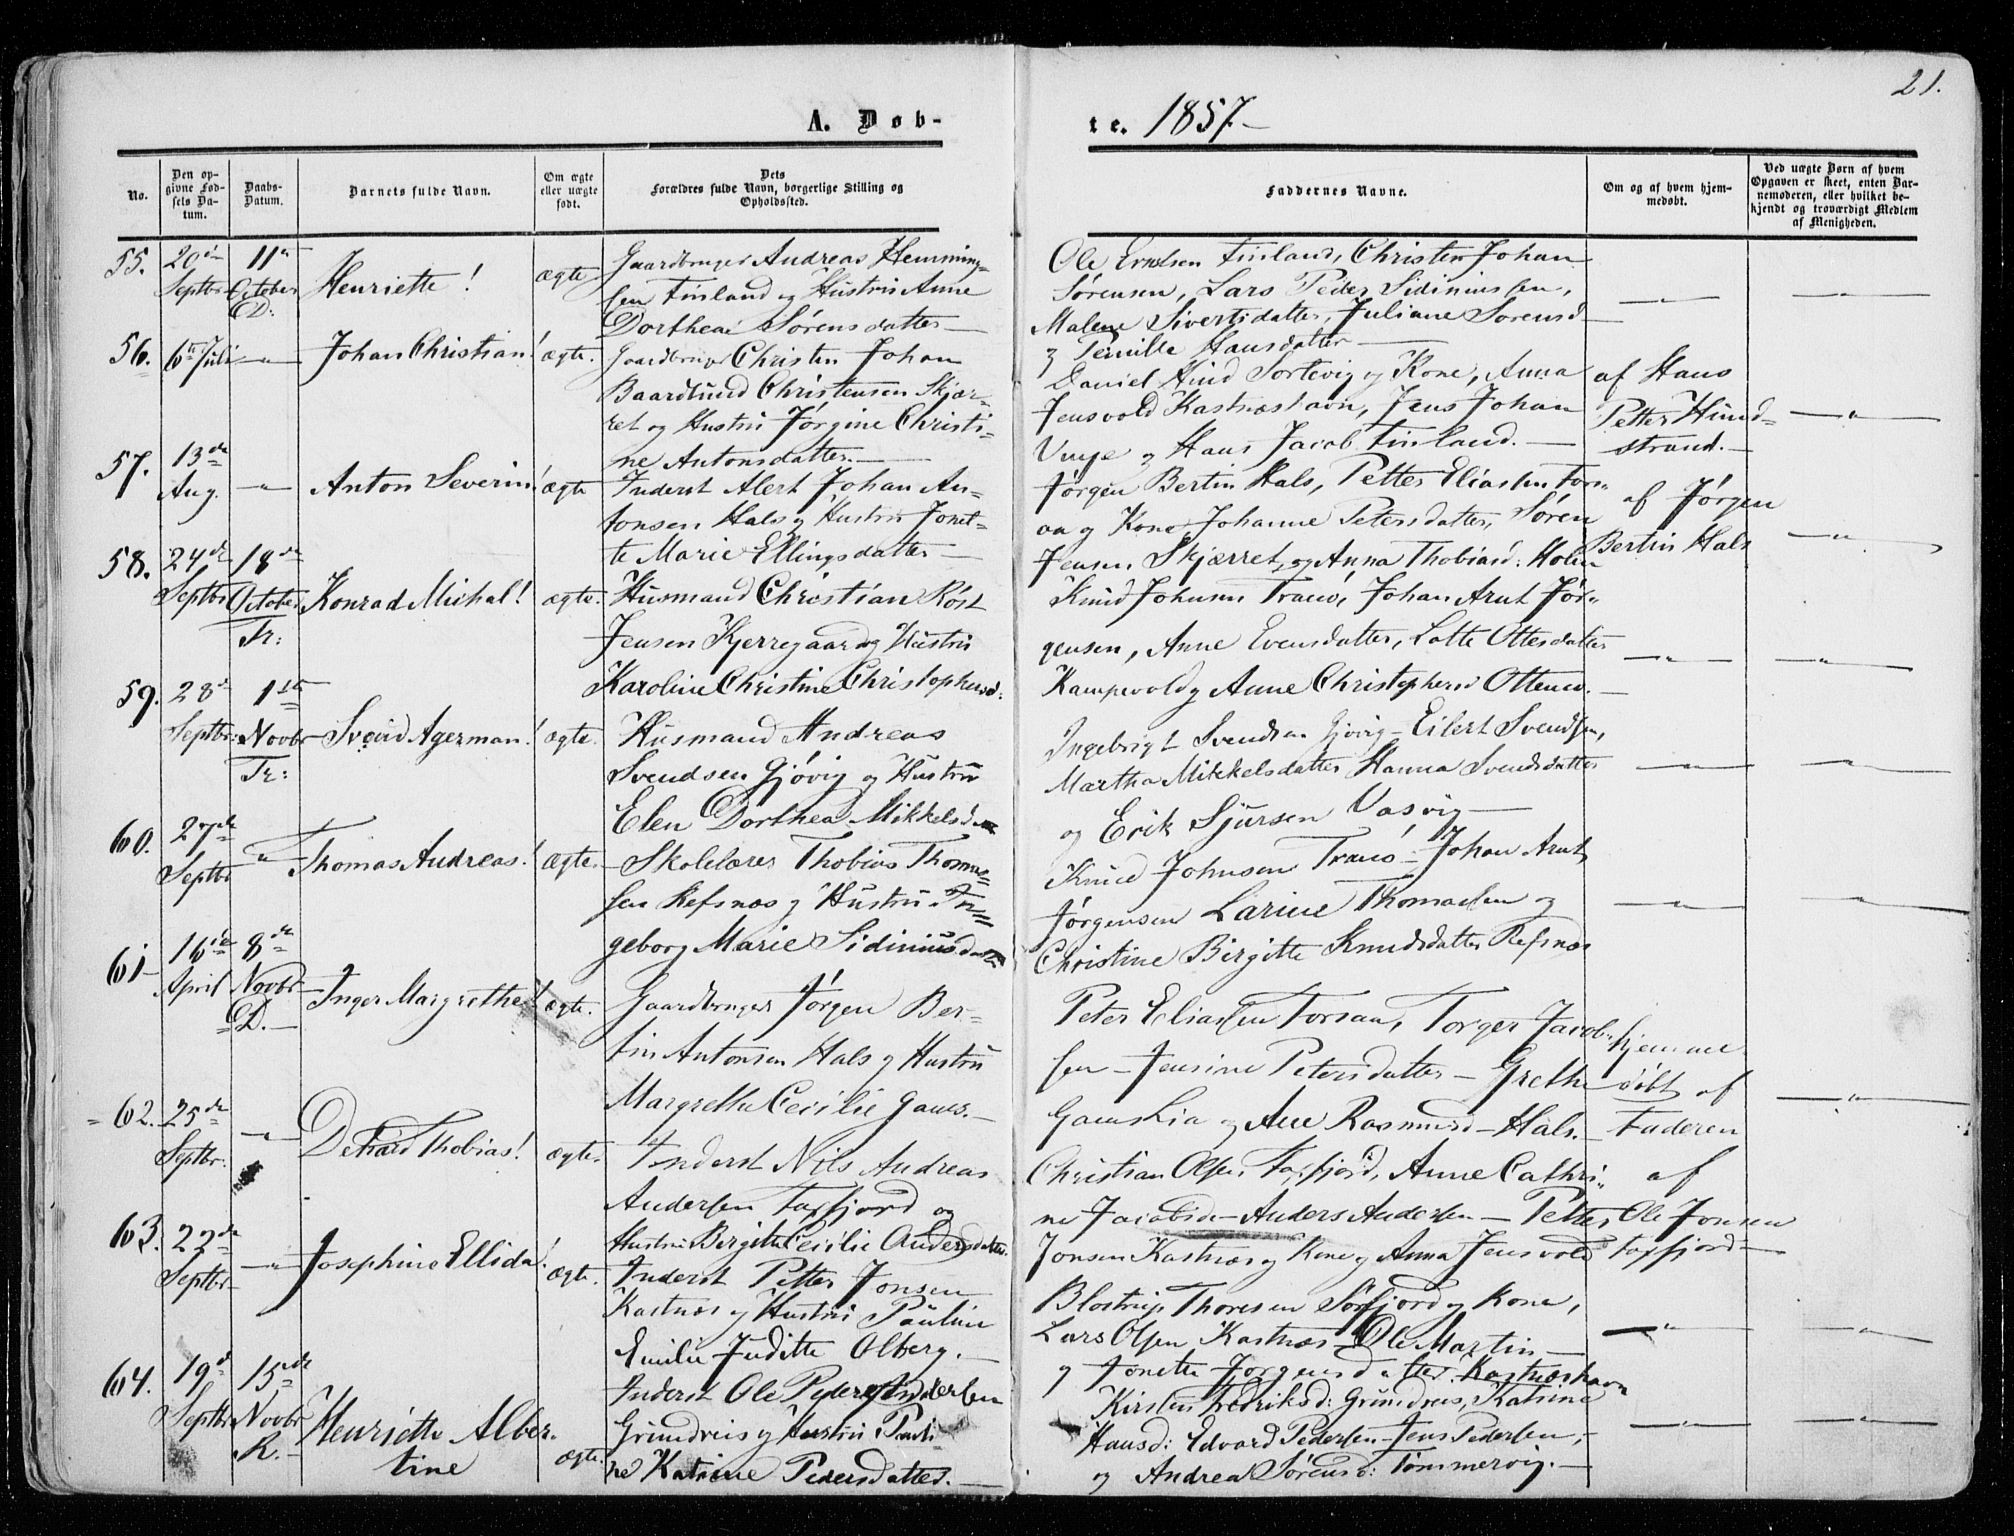 21.
A. Døb-
te. 1857.
No.
Den op-
givne Fød-
sels Da-
tum.
Daabs-
Datum.
Barnets fulde Navn.
Om ægte
eller uægte
født.
Dets
Forældres fulde Navn, borgerlige Stilling og
Opholdssted.
Faddernes Navne.
Om og af hvem hjem-
medøbt.
Ved uægte Børn af hvem
Opgaven er skeet, enten Bar-
nemoderen, eller hvilket be-
kjendt og troværdigt Medlem
af Menigheden.
55.
20de
Septbr
11te
October
D:
Henriette!
ægte
Gaardbruger Andreas Hemming-
sen Finland og Hustru Anne
Dorthea Sørensdatter
Ole Finland, Christen Johan
Sørensen, Lars Peder Sidiniussen,
Malene Sivertsdatter, Juliane Sørensd
og Pernille Hansdatter
56.
6te Juli
"
Johan Christian!
ægte.
Gaardbruger Christen Johan
Baardlund Christensen Skjær-
ret og Hustru Jørgine Christi-
ne Antonsdatter.
Daniel Hind Sortevig og Kone, Anna
Jensvold Kastnæshavn, Jens Johan
og Hans Jacob Finland.
af Hans
Petter Hund-
strand.
57.
13de
Aug.
"
Anton Severin!
ægte
Inderst Alert Johan An-
tonsen Hals og Hustru Jonet-
te Marie Ellingsdatter
Jørgen Bertin Hals, Petter Eliassen Fors-
aa og Kone Johanne Petersdatter, Søren
Jensen Skjærret, og Anna Thobiasd: Holm
af Jørgen
Bertin Hals
58.
24de
Septbr
18de
October
Tr:
Konrad Michal!
ægte.
Husmand Christian Röst
Jensen Kjerregaard og Hustru
Karoline Christine Christophersd:
Knud Johnsen Tranö, Johan Arnt Jør-
gensen, Anne Evensdatter, Lotte Ottesdatter
Kampevold og Anne Christophersd
59.
28de
Septbr.
1ste
Novbr
Tr:
Svend Agerman!
ægte.
Husmand Andreas
Svendsen Gjövig og Hustru
Elen Dorthea Mikkelsd
Ingebrigt Svendsen Gjövig - Eilert Svendsen,
Martha Mikkelsdatter Hanna Svendsdatter
og Erik Sjursen Vasvig
60.
27de
Septbr
"
Thomas Andreas!
ægte.
Skolelærer Thobias Thomas-
sen Refsnæs og Hustru In-
geborg Marie Sidiniusdatter
Knud Johnsen Tranö - Johan Arnt
Jørgensen Larine Thomassen og
Christine Birgitte Knudsdatter Refsnæs
61
16de
April
8de
Novbr
D.
Inger Margrethe!
ægte.
Gaardbruger Jørgen Ber-
tin Antonsen Hals og Hustru
Margrethe Cecilie Gaues.
Peter Eliassen Forsaa, Torger Jacob-
sen - Jensine Petersdatter - Grethe
og Ane Rasmusd - Hals.
hjemme
döbt af
Faderen
62.
25de
Septbr.
"
Thobias!
ægte.
Inderst Nils Andreas
Andersen Faxfjord og
Hustru Birgitte Cecilie Andersdatter.
Christian Olsen Faxfjord, Anne Cathri-
ne Jacobsd - Anders Andersen - Petter
Jonsen Kastnæs og Kone og Anna Jensvold
af
Ole Jonsen
Faxfjord
63.
22de
Septbr
"
Josephine Ellida!
ægte.
Inderst Petter Jonsen
Kastnæs og Hustru Pauline
Emilie Juditte Olberg.
Blostrup Thoresen Sörfjord og Kone,
Lars Olsen Kastnæs - Ole Martin
og Jonette Jørgensdatter Kastnæshavn
64.
19de
Septbr
15de
Novbr
R.
Henriette Alber-
tine
ægte.
Inderst Ole Peder Andersen
Grundreis og Hustru Pauli-
ne Katrine Pedersdatter.
Kirsten Fredriksd: Grundreis, Katrine
Hansd: Edvard Pedersen - Jens Pedersen,
og Andrea Sørensd: Tömmervig.